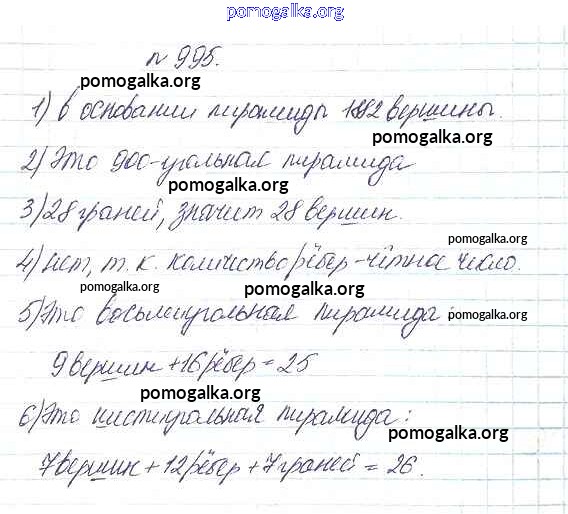 pomogalka.org
pomogalka.org
N 995.
pomogalka.org
1) в основании пирамиды 1892 вершины.
pomogalka.org
2) Это 900-угольная пирамида
pomogalka.org
3) 28 граней, значит 28 вершин.
pomogalka.org
4) нет, т. к. количество рёбер - чётное число.
pomogalka.org
pomogalka.org
5) Это восьмиугольная пирамида:
pomogalka.org
9 вершин + 16 рёбер = 25
pomogalka.org
6) Это шестиугольная пирамида:
pomogalka.org
7 вершин + 12 рёбер + 7 граней = 26.